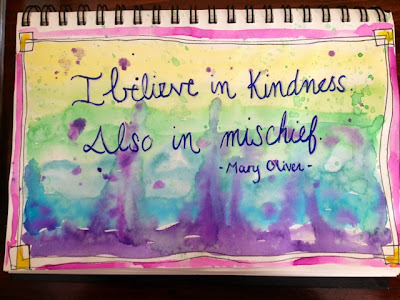 I believe in Kindness.
Also in mischief.
- Mary Oliver -